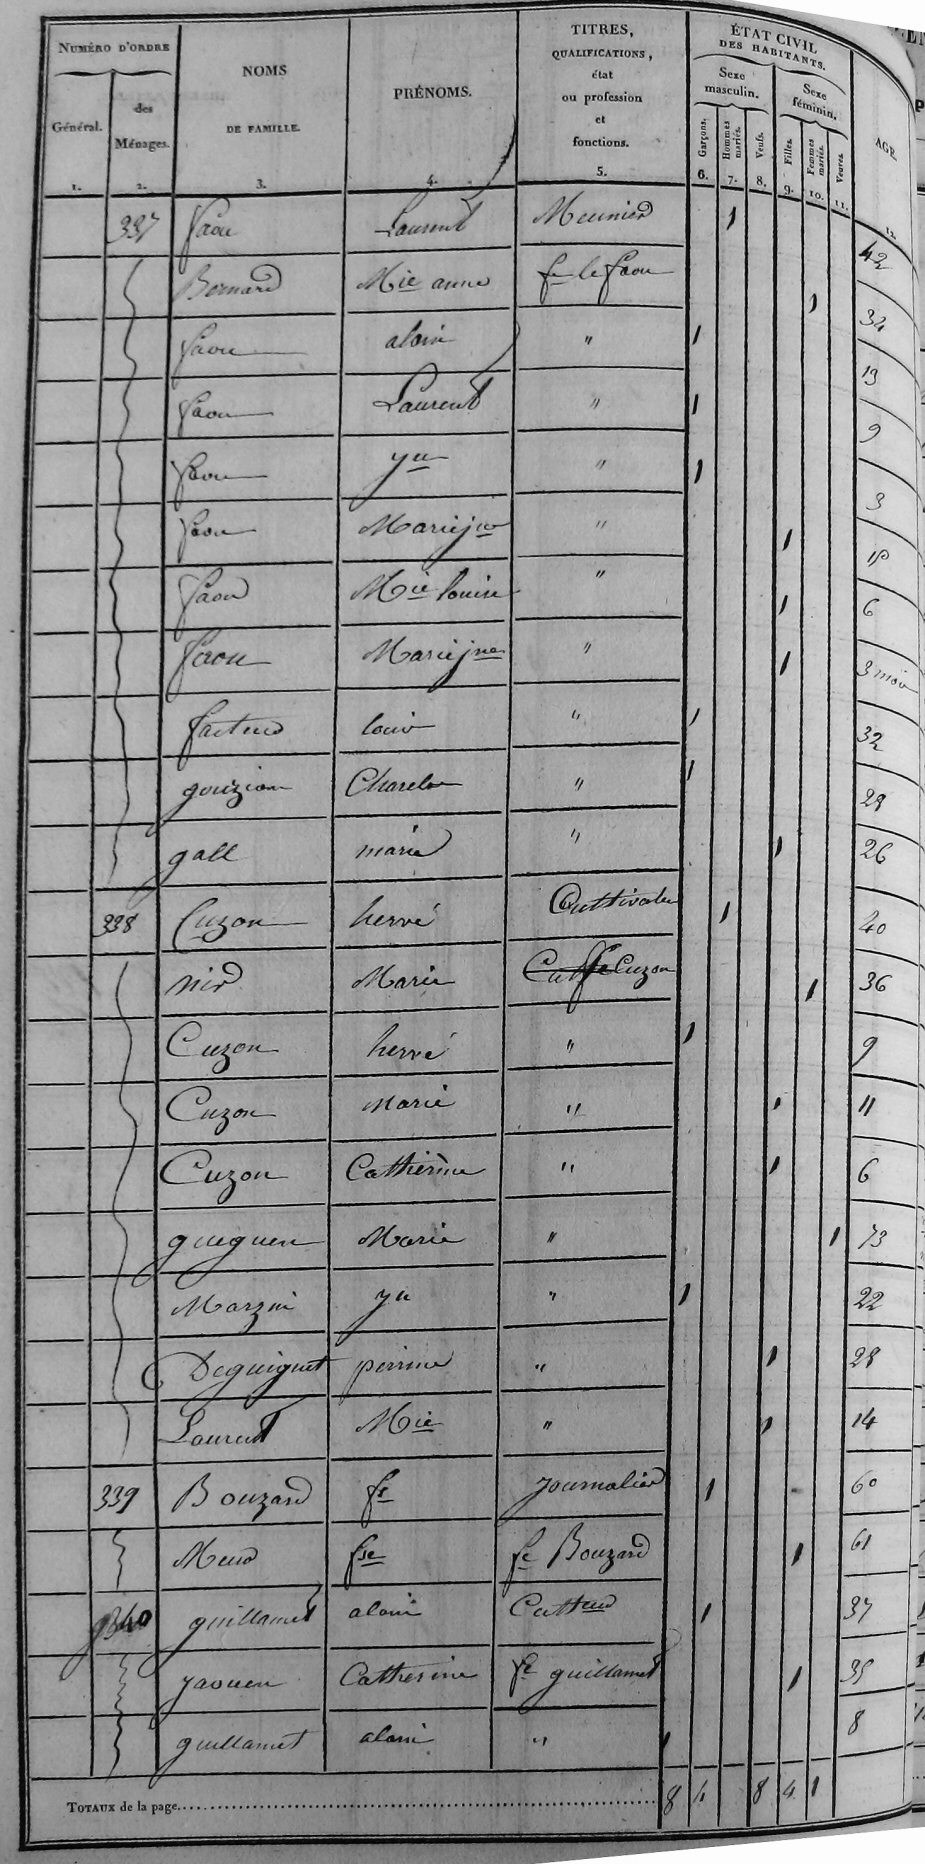 NUMÉRO D'ORDRE
Général.
des Ménages.
NOMS DE FAMILLE.
PRÉNOMS.
TITRES, QUALIFICATIONS, état ou profession et fonctions.
ÉTAT CIVIL DES HABITANTS.
Sexe masculin.
Sexe féminin.
Garçons.
Hommes mariés.
Veufs.
Filles.
Femmes mariés.
Veuves.
AGE.
1. 2. 3. 4. 5. 6. 7. 8. 9. 10. 11. 12.
337 faou Laurent Meunier 1 42
Bernard Mie anne fe le faou 1 34
faou alain " 1 19
faou Laurent " 1 9
faou yu " 1 3
faou Mariejne " 1
faou Mie louise " 1 6
faou Mariejne " 1 3 mois
louis " 1 32
gouzien Charles " 1 29
gall marie " 1 26
338 Cuzon hervé Cultivate 1 40
nir Marie fe Cuzon 1 36
Cuzon hervé " 1 9
Cuzon Marie " 1 11
Cuzon Catherine " 1 6
gueguen Marie " 1 73
Marzin yu " 1 22
Deguignet perrine " 1 28
Laurent Mie " 1 14
339 Bouzard fs Journalier 1 60
Meur fse fe Bouzard 1 61
340 guillamet alain Cultteur 1 37
yaouen Catherine fe guillamet 1 35
guillamet alain " 1 8
TOTAUX de la page 8 4 8 4 1